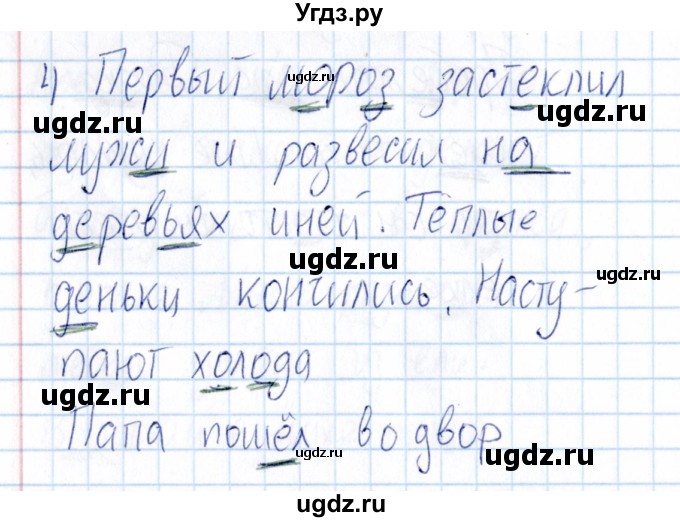 Угдз.ру
4) Первый мороз застеклил
лужи и развесил на
деревьях иней. Тёплые
деньки кончились. Насту-
пают холода
Папа пошёл во двор
ugdz.ru
ugdz.ru
ugdz.ru
ugdz.ru
ugdz.ru
ugdz.ru
ugdz.ru
ugdz.ru
ugdz.ru
ugdz.ru
ugdz.ru
ugdz.ru
ugdz.ru